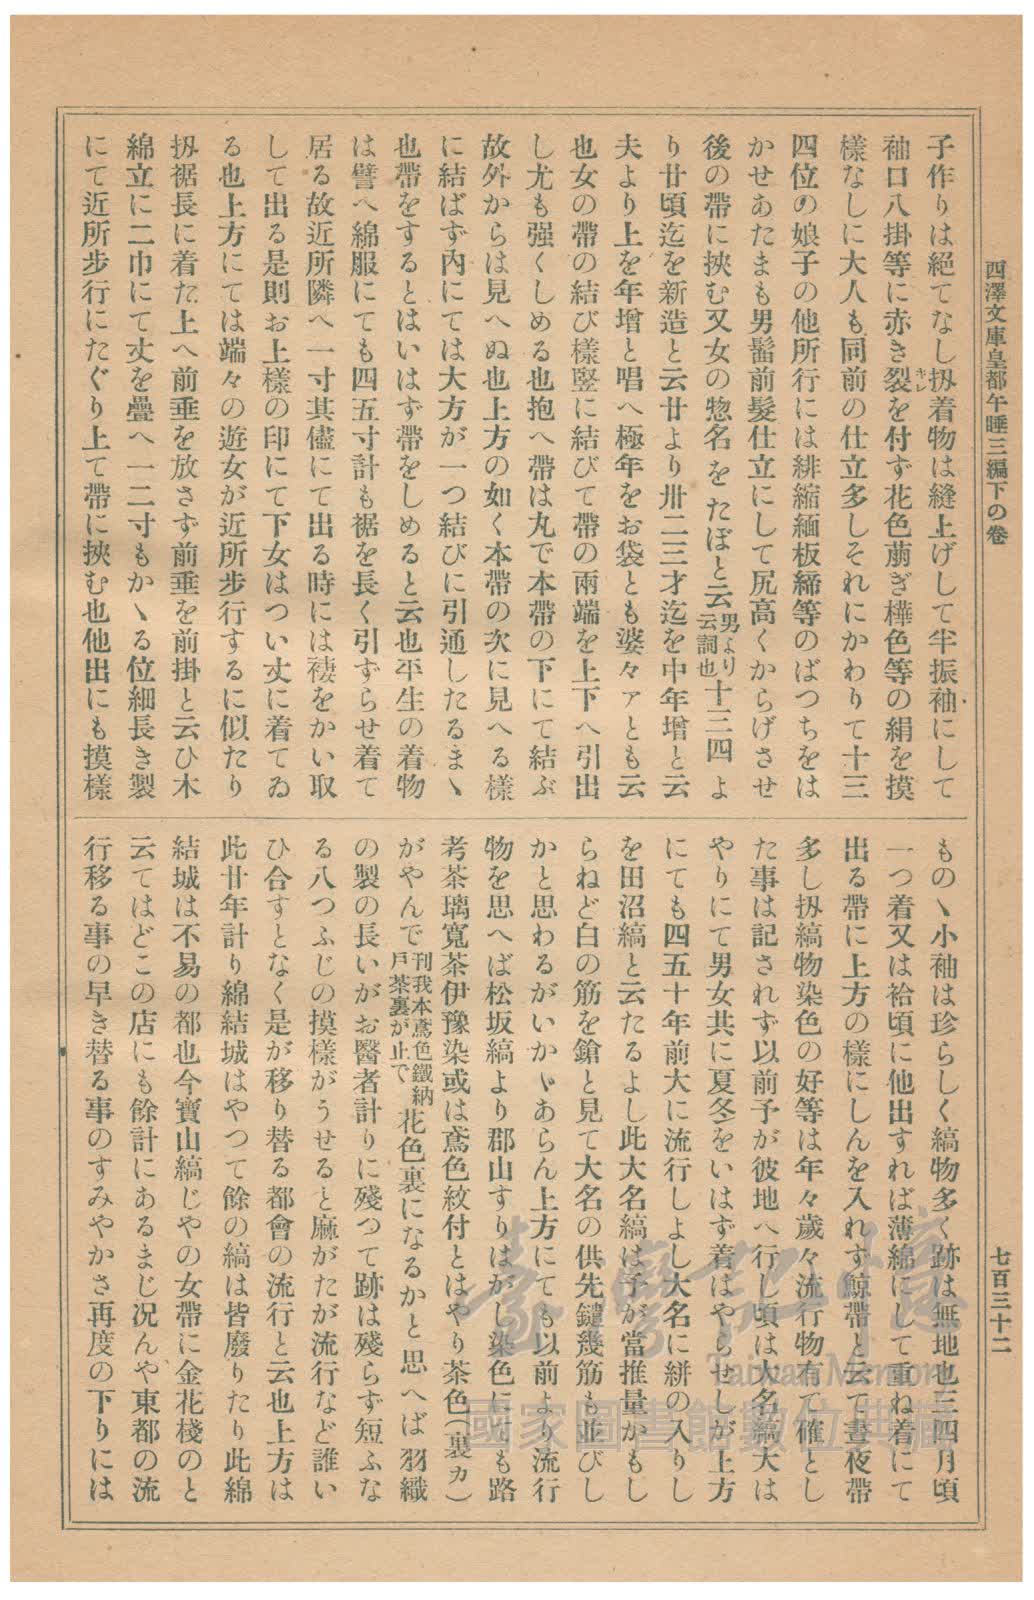 西澤文庫皇都午睡三編下の卷
七百三十二
子作りは絕てなし扨着物は縫上げして半振袖にして
袖口八掛等に赤き裂を付ず花色萠ぎ樺色等の絹を摸
キレ
樣なしに大人も同前の仕立多しそれにかわりて十三
四位の娘子の他所行には緋縮緬板締等のばつちをは
かせあたまも男髷前髮仕立にして尻高くからげさせ
後の帶に挾む又女の惣名をたぼと云男より云詞也十三四よ
り廿頃迄を新造と云廿より卅二三才迄を中年增と云
夫より上を年增と唱へ極年をお袋とも婆々アとも云
也女の帶の結び樣竪に結びて帶の兩端を上下へ引出
し尤も强くしめる也抱へ帶は丸で本帶の下にて結ぶ
故外からは見へぬ也上方の如く本帶の次に見へる樣
に結ばず內にては大方が一つ結びに引通したるまゝ
也帶をするとはいはず帶をしめると云也平生の着物
は譬へ綿服にても四五寸計も裾を長く引ずらせ着て
居る故近所隣へ一寸其儘にて出る時には褄をかい取
して出る是則お上樣の印にて下女はつい丈に着てゐ
る也上方にては端々の遊女が近所步行するに似たり
扨裾長に着た上へ前垂を放さず前垂を前掛と云ひ木
綿立に二巾にて丈を疊へ一二寸もかゝる位細長き製
にて近所步行にたぐり上て帶に挾む也他出にも摸樣
ものゝ小袖は珍らしく縞物多く跡は無地也三四月頃
一つ着又は袷頃に他出すれば薄綿にして重ね着にて
出る帶に上方の樣にしんを入れず鯨帶と云て晝夜帶
多し扨縞物染色の好等は年々歲々流行物有て確とし
た事は記されず以前予が彼地へ行し頃は大名縞大は
やりにて男女共に夏冬をいはず着はやらせしが上方
にても四五十年前大に流行しよし大名に絣の入りし
を田沼縞と云たるよし此大名縞は予が當推量かもし
らねど白の筋を鎗と見て大名の供先鑓幾筋も並びし
かと思わるがいかゞあらん上方にても以前より流行
物を思へば松坂縞より郡山すりはがし染色にても路
考茶璃寬茶伊豫染或は鳶色紋付とはやり茶色(裏カ)
がやんで刊我本鳶色鐵納戶茶裏が止で花色裏になるかと思へば羽織
の製の長いがお醫者計りに殘つて跡は殘らず短ふな
る八つふじの摸樣がうせると麻がたが流行など誰い
ひ合すとなく是が移り替る都會の流行と云也上方は
此廿年計り綿結城はやつて餘の縞は皆廢りたり此綿
結城は不易の都也今寶山縞じやの女帶に金花棧のと
云てはどこの店にも餘計にあるまじ况んや東都の流
行移る事の早き替る事のすみやかさ再度の下りには
臺灣記憶
Taiwan Memory
國家圖書館數位典藏